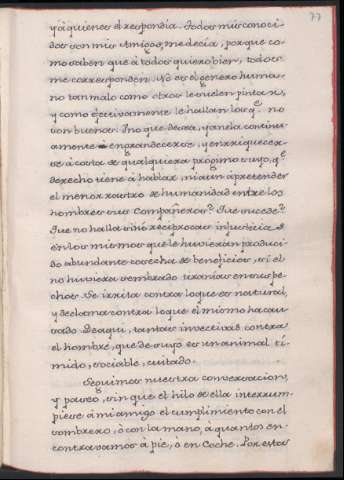 77
y à quienes el respondia. Todos mis conoci-
dos son mis Amigos, me decia, porque co-
mo saben que à todos quiero bien, todos
me corresponden. No es el genero huma-
no tan malo como otros le suelen pintar,
y como efectivamente le hallan los q.e no
son buenos. Uno que desea, y anela continu-
amente engrandecerse, y enriquecer-
se à costa de qualquiera proximo suyo, q.e
derecho tiene à hablar, ni aun à pretender
el menor rastro de humanidad entre los
hombres sus Compañeros? Que sucede?
Que no halla sino reciprocas injusticias
en los mismos que le huvieran produci-
do abundante cosecha de beneficios, si él
no huviera sembrado tiranias en sus pe-
chos. Se irrita contra lo que es natural,
y declama contra lo que el mismo ha cau-
sado. De aqui, tantas invectivas contra
el hombre, que de suyo es un animal ti-
mido, sociable, cuitado.
Seguimos nuestra conversacion,
y paseo, sin que el hilo de ella interrum-
piese à mi amigo el cumplimiento con el
sombrero, ò con la mano, à quantos en-
contravamos à pie, ò en Coche. Por estas